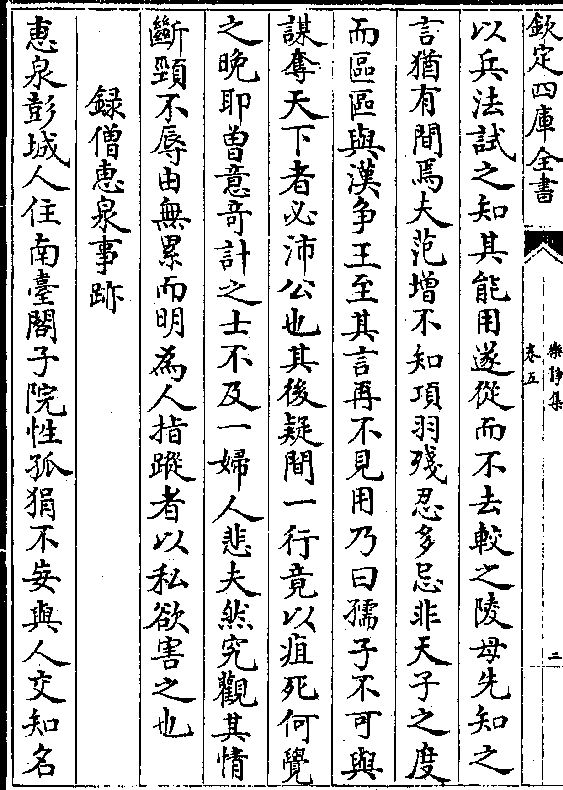 欽定四庫全書
樂靜集
卷五
二
以兵法試之知其能用遂從而不去較之陵母先知之
言猶有間焉夫范增不知項羽殘忍多忌非天子之度
而區區與漢争王至其言再不見用乃曰孺子不可與
謀奪天下者必沛公也其後疑間一行竟以疽死何覺
之晚耶曽意竒計之士不及一婦人悲夫然究觀其情
斷頸不辱由無累而明為人指蹤者以私欲害之也
録僧恵泉事跡
恵泉彭城人住南臺閣子院性孤狷不妄與人交知名